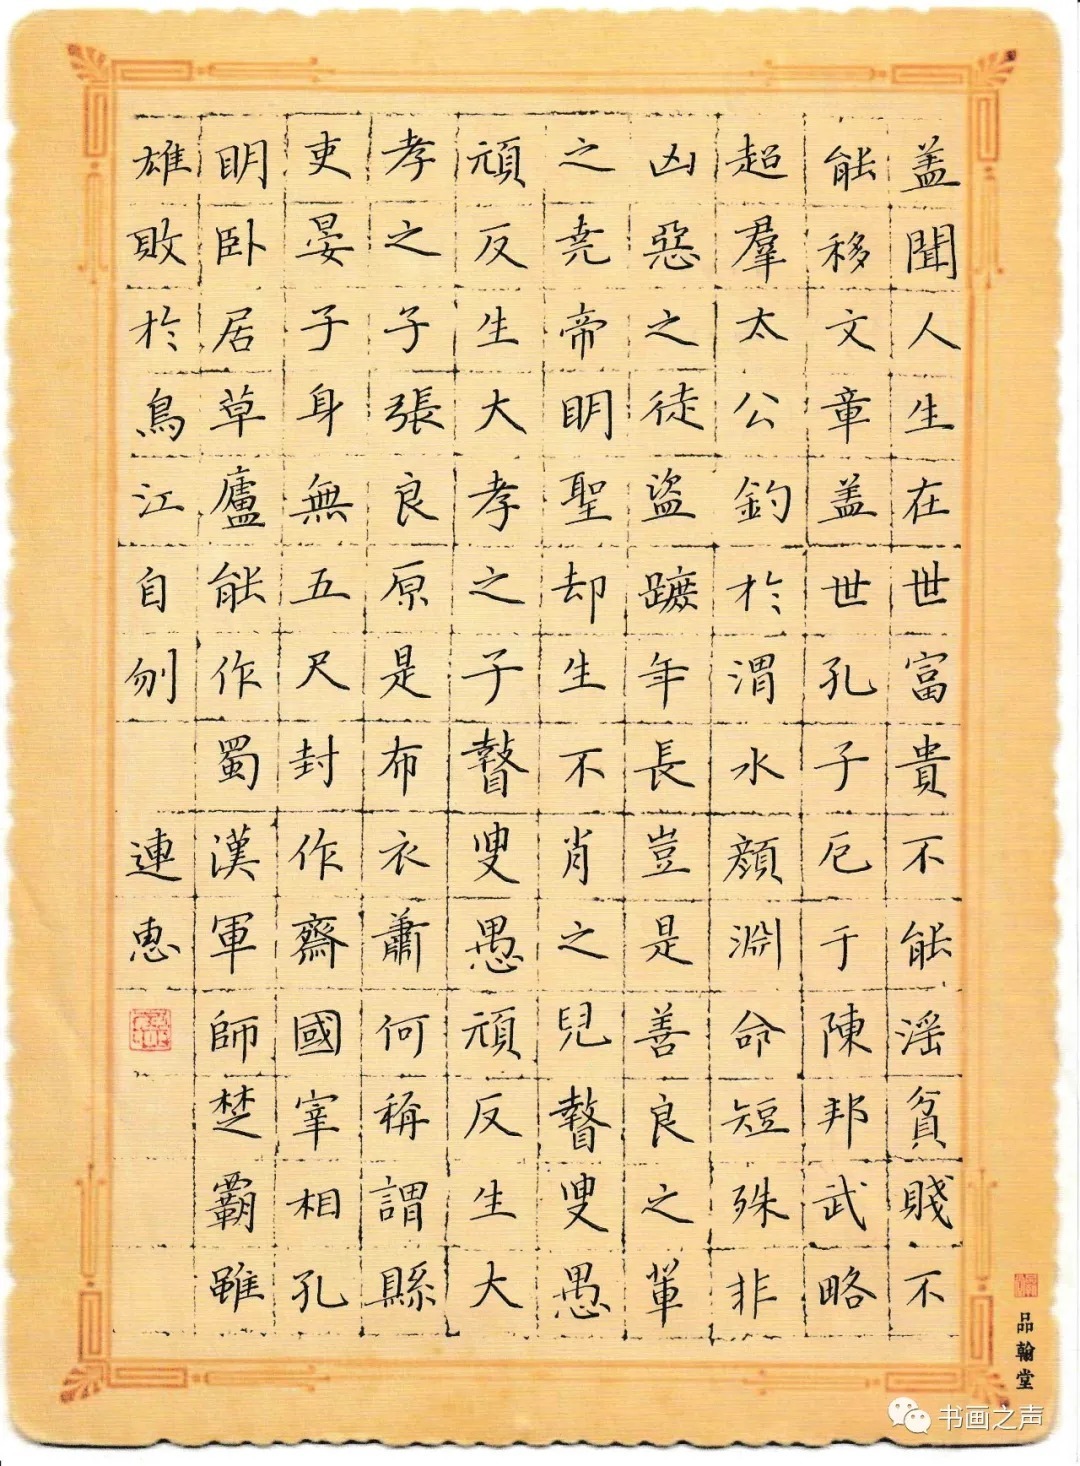 盖聞人生在世富貴不能滛貧賤不
能移文章盖世孔子厄于陳邦武略
超羣太公釣於渭水顔淵命短殊非
凶惡之徒盜蹠年長豈是善良之輩
之尭帝眀聖却生不肖之兒瞽叟愚
頑反生大孝之子瞽叟愚頑反生大
孝之子張良原是布衣蕭何稱謂縣
吏晏子身無五尺封作齊國宰相孔
眀卧居草廬能作蜀漢軍師楚霸雖
雄敗於鳥江自刎
連惠
品翰堂
书画之声